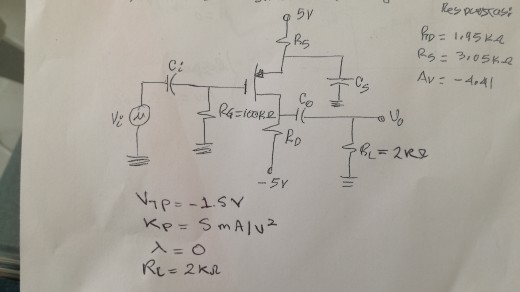 Respuestas:
RD = 1.95KΩ
RS = 3.05KΩ
AV = -4.41
5V
RS
Ci
CS
Co
Vi
RG=100KΩ
RD
Vo
RL = 2KΩ
-5V
VTP = -1.5V
KP = 5mA/V²
λ = 0
RL = 2KΩ